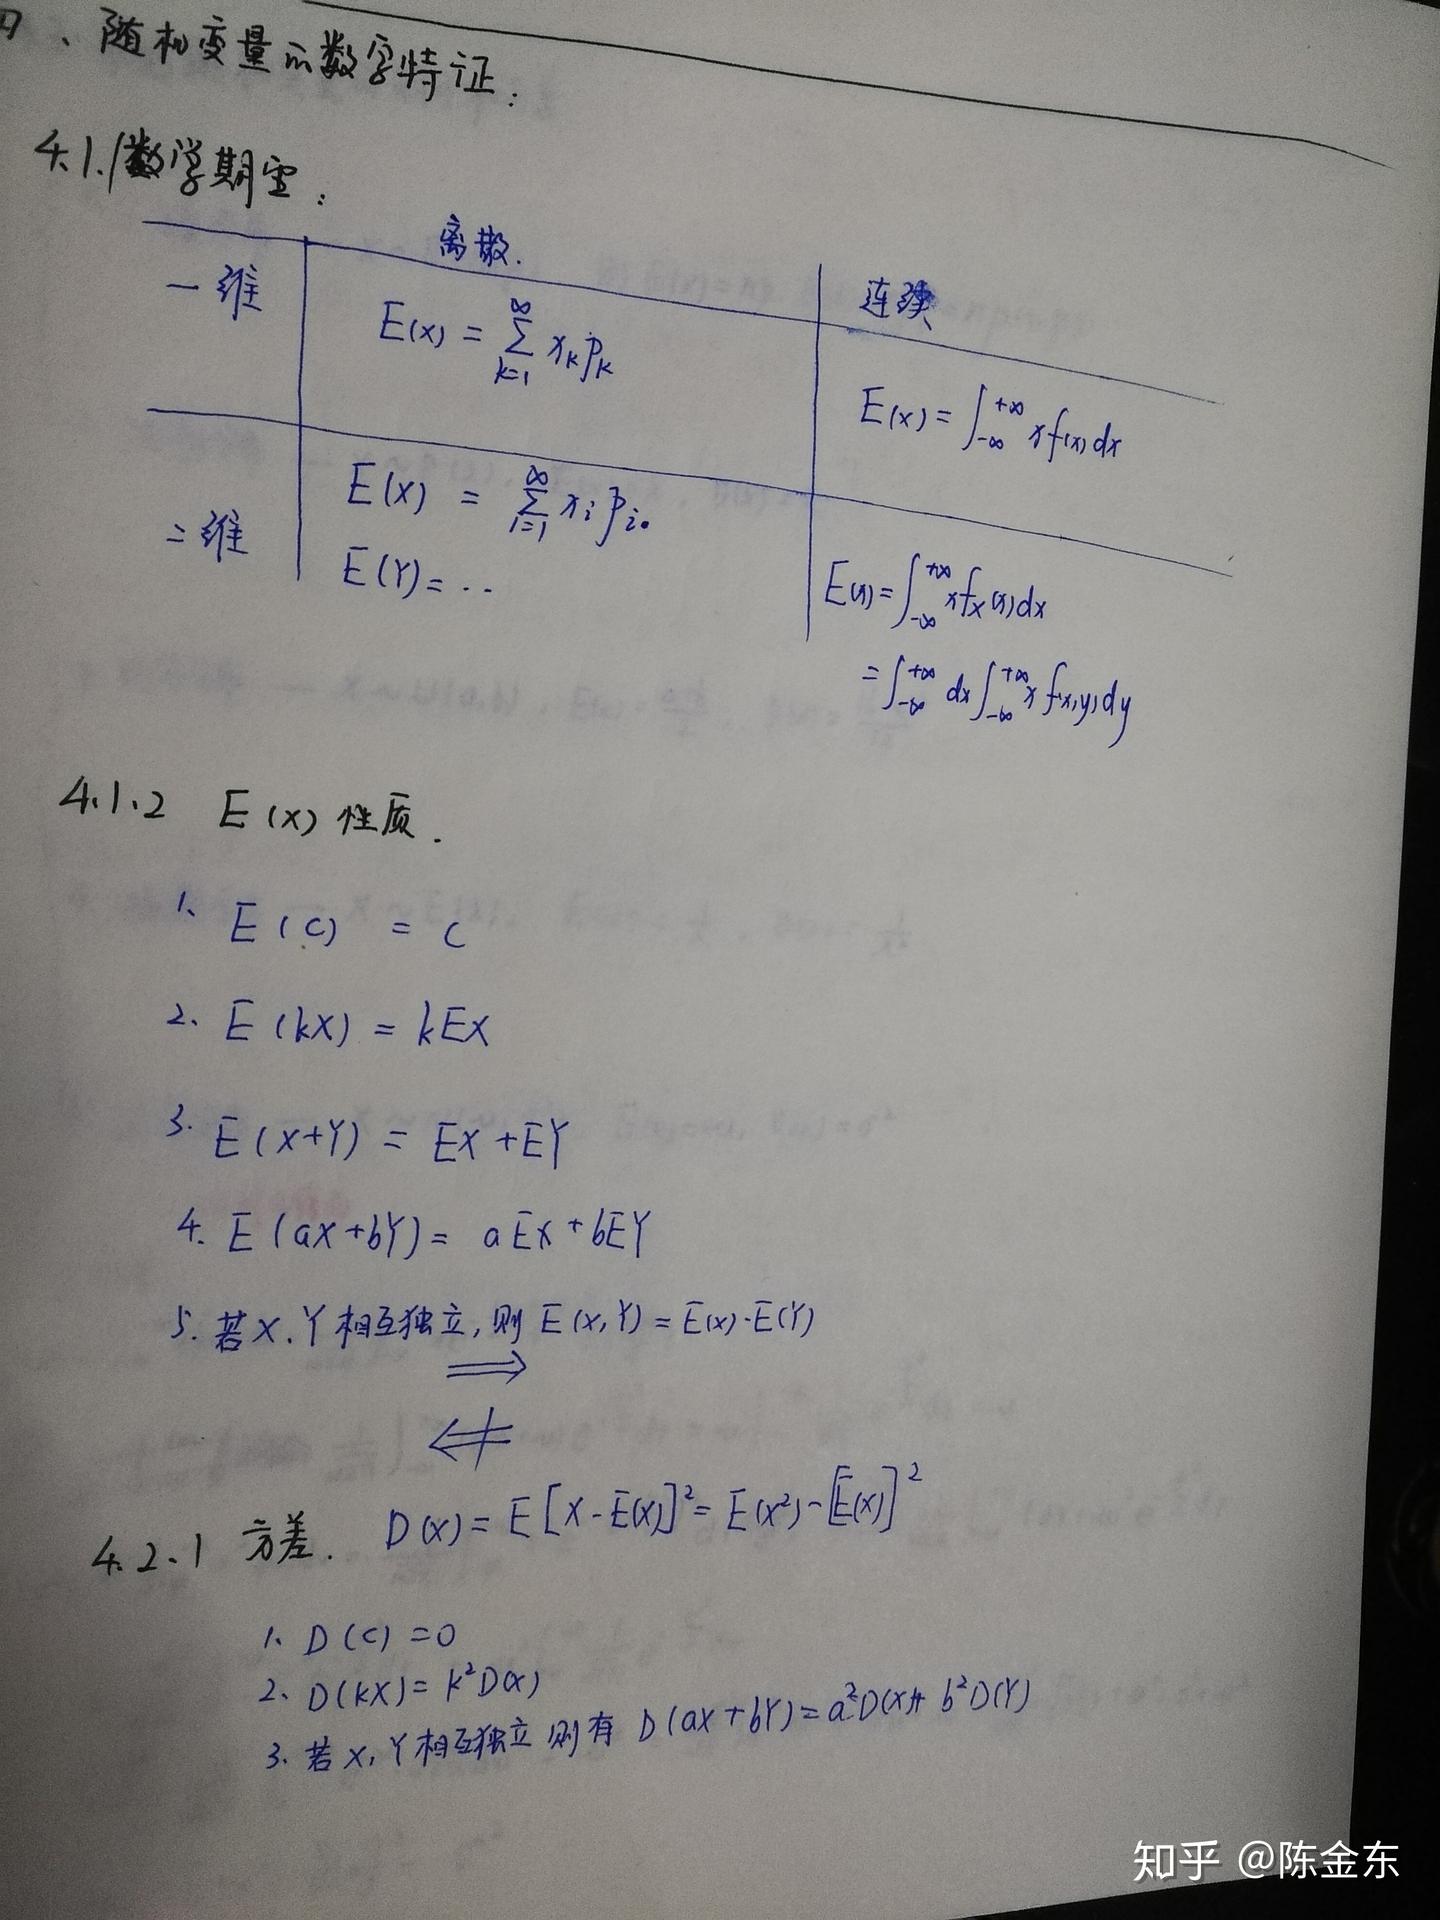 四、随机变量的数字特征:
4.1.1数学期望:
离散.
连续
一维
E(X) = ∑_{k=1}^{∞} x_k p_k
E(X) = ∫_{-∞}^{+∞} x f(x) dx
二维
E(X) = ∑_{i=1}^{∞} x_i p_{i·}
E(Y) = ..
E(X) = ∫_{-∞}^{+∞} x f_X(x) dx
= ∫_{-∞}^{+∞} dx ∫_{-∞}^{+∞} x f(x,y) dy
4.1.2 E(X) 性质.
1、 E(C) = C
2、 E(kX) = kEX
3. E(X+Y) = EX + EY
4. E(aX+bY) = aEX + bEY
5. 若X、Y相互独立,则 E(X,Y) = E(X)·E(Y)
⟹
⇍
4.2.1 方差. D(X) = E[X-E(X)]² = E(X²) - [E(X)]²
1、D(C) = 0
2、D(kX) = k²D(X)
3. 若X,Y相互独立 则有 D(aX+bY) = a²D(X) + b²D(Y)
知乎 @陈金东